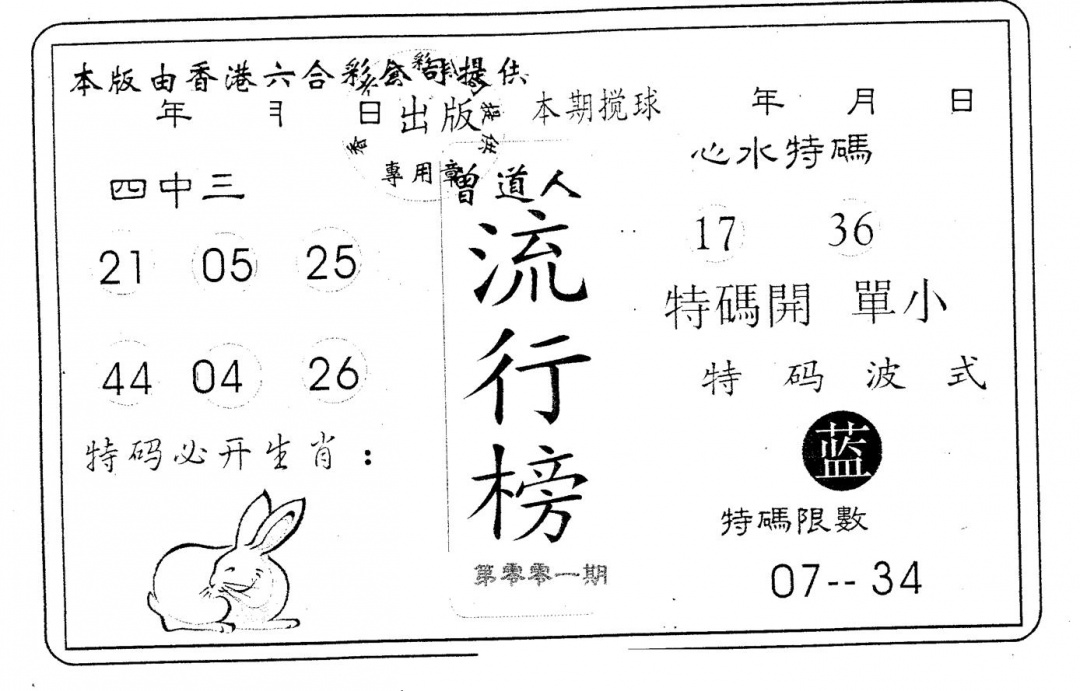 本版由香港六合彩公司提供
年 月 日 出版 本期搅球 年 月 日
專用章
四中三
21 05 25
44 04 26
特码必开生肖：
曾道人
流行榜
第零零一期
心水特碼
17 36
特碼開 單小
特码波式
蓝
特碼限數
07-- 34